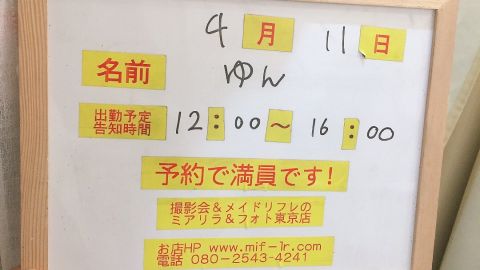 4月 11日
名前 ゆん
出勤予定
告知時間 12:00～16:00
予約で満員です!
撮影会&メイドリフレの
ミアリラ&フォト東京店
お店HP www.mif-lr.com
電話 080-2543-4241